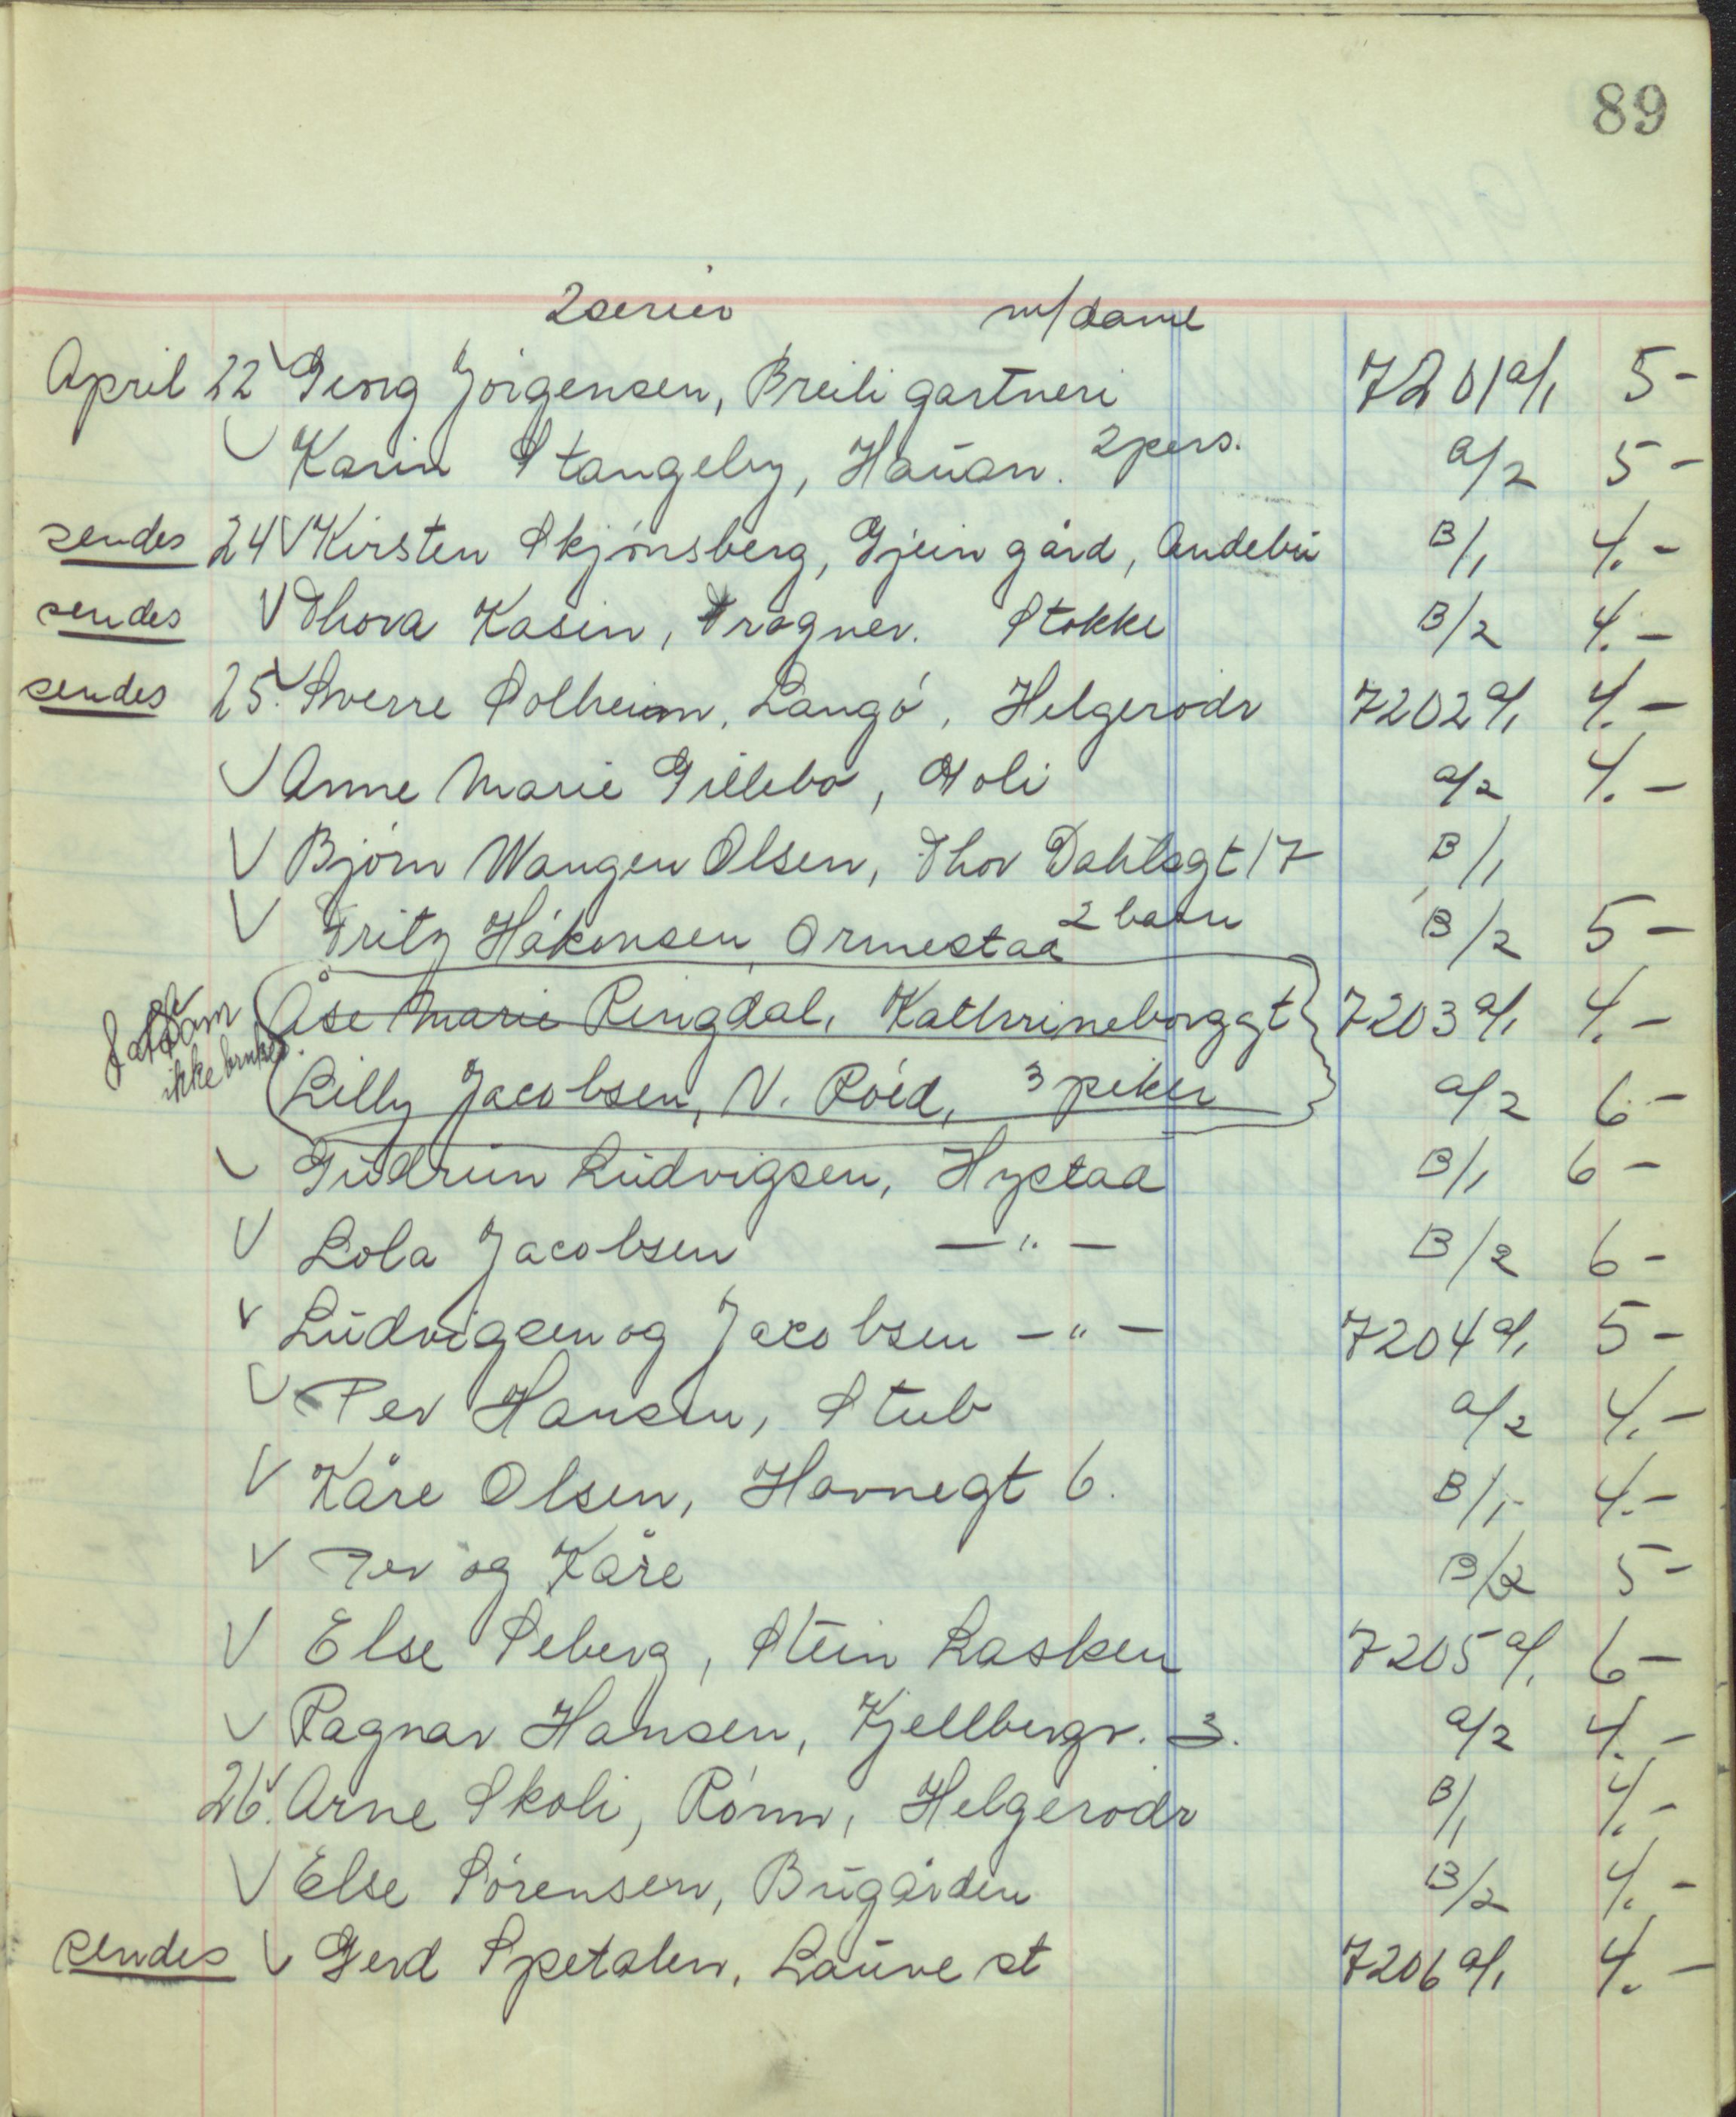 89
2 serier m/dame
April 22 Georg Jörgensen, Breili gartneri 7201 a/1 5-
Karin Stangeby, Hauan. 2 pers. a/2 5-
sendes 24 Kirsten Skjönsberg, Gjein gård, Andebu B/1 4.-
sendes Thora Kasin, Fragner. Stokke B/2 4.-
sendes 25. Sverre Solheim, Langö, Helgerödr 7202 a/1 4.-
Anne Marie Gillebo, Moli a/2 4.-
Björn Wangen Olsen, Thor Dahlsgt 17 B/1
Fritz Håkonsen, Ormestad 2 barn B/2 5-
Åse Marie Ringdal, Kathrineborggt 7203 a/1 4.-
ikke brukes.
Lilly Jacobsen, N. Röed, 3 piker a/2 6-
Gudrun Ludvigsen, Hystad B/1 6-
Lola Jacobsen -"- B/2 6-
Ludvigsen og Jacobsen -"- 7204 a/1 5-
Per Hansen, Stub a/2 4.-
Kåre Olsen, Havnegt 6. B/1 4.-
Per og Kåre B/2 5-
Else Seberg, Stein Lasken 7205 a/1 6-
Ragnar Hansen, Kjellbergv. 3. a/2 4.-
26. Arne Skoli, Rönn, Helgerödr B/1 4.-
Else Sörensen, Bugården B/2 4.-
sendes Gerd Spetalen, Lauve st 7206 a/1 4.-